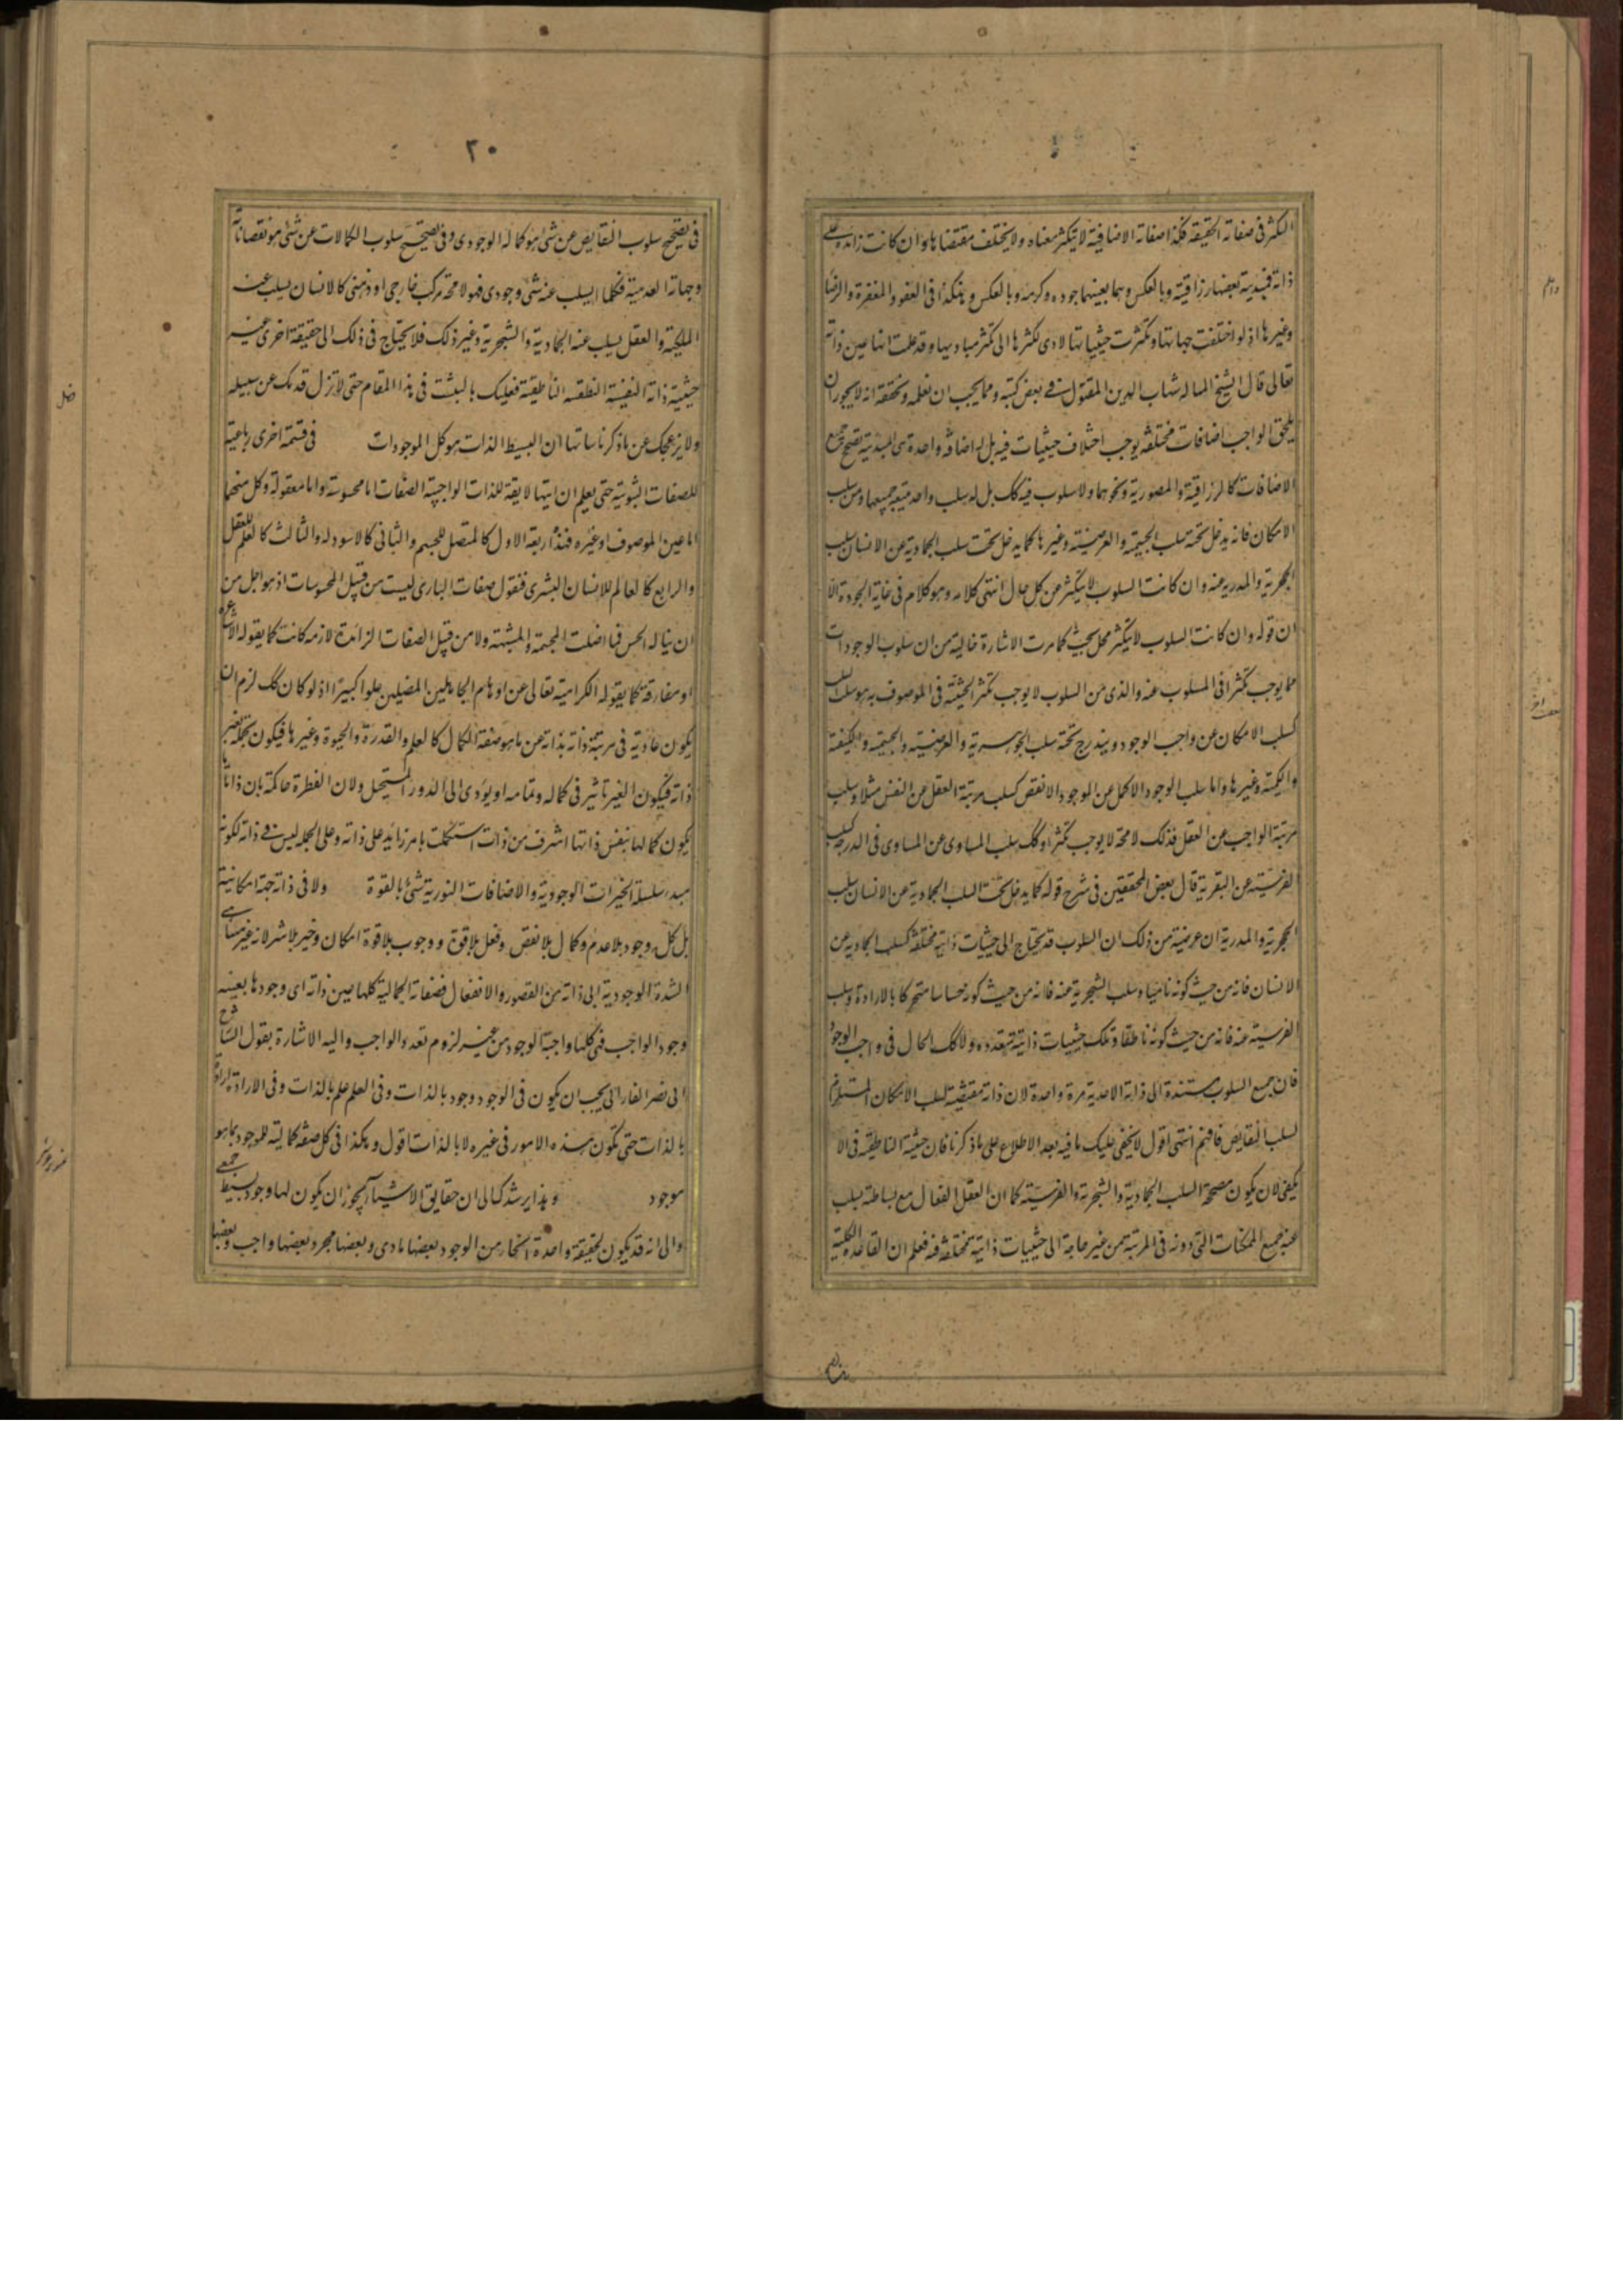 التكثر فى صفاته الحقيقة فكذا صفاته الاضافية لا يتكثر معناه ولا يختلف مقتضاها وان كانت زائدة على
ذاته فمبدئيته بعينها رازقيته وبالعكس وهما بعينهما جوده وكرمه وبالعكس وهكذا فى العفو والمغفرة والرضا
وغيرها اذ لو اختلفت جهاتها وتكثرت حيثياتها لادى تكثرها الى تكثر مباديها وقد علمت انها عين ذاته
تعالى قال الشيخ المتاله شهاب الدين المقتول فى بعض كتبه ومما يجب ان نعلمه ونحققه انه لا يجوز ان
يلحق الواجب اضافات مختلفة يوجب اختلاف حيثيات فيه بل له اضافة واحدة هى المبدئية تصحح جميع
الاضافات كالرازقية والمصورية ونحوهما ولا سلوب فيه كك بل له سلب واحد يتبعه جميعها وهو سلب
الامكان فانه يدخل تحته سلب الجسمية والعرضية وغيرها كما يدخل تحت سلب الجمادية عن الانسان سلب
الحجرية والمدرية عنه وان كانت السلوب لا يتكثر عن كل حال انتهى كلامه وهو كلام فى غاية الجودة الا
ان قوله وان كانت السلوب لا يتكثر محل بحث كما مرت الاشارة خالية من ان سلوب الوجودات
مما يوجب تكثرا فى المسلوب عنه والذى من السلوب لا يوجب تكثر الحيثية فى الموصوف به هو سلب السلب
كسلب الامكان عن واجب الوجود ويندرج تحته سلب الجوهرية والعرضية والجسمية والكيفية
والكمية وغيرها واما سلب الوجود الاكمل عن الوجود الانقص كسلب مرتبة العقل عن النفس مثلا وسلب
مرتبة الواجب عن العقل فذلك لا محة لا يوجب تكثرا وكك سلب المساوى عن المساوى فى الدرجة كسلب
الفرسية عن البقرية قال بعض المحققين فى شرح قوله كما يدخل تحت السلب الجمادية عن الانسان سلب
الحجرية والمدرية ان عرضية من ذلك ان السلوب قد يحتاج الى حيثيات ذاتية مختلفة كسلب الجمادية عن
الانسان فانه من حيث كونه ناميا وسلب الشجرية عنه فانه من حيث كونه حساسا متحركا بالارادة وسلب
الفرسية عنه فانه من حيث كونه ناطقا وتلك حيثيات ذاتية متعددة ولا كك الحال فى واجب الوجود
فان جميع السلوب مستندة الى ذاته الاحدية مرة واحدة لان ذاته مقتضية لسلب الامكان المستلزم
لسلب النقايص فافهم انتهى اقول لا يخفى عليك ما فيه بعد الاطلاع على ما ذكرنا فان حيثية الناطقية فى الا
يكفى لان يكون مصححة لسلب الجمادية والشجرية والفرسية كما ان العقل الفعال مع بساطته يسلب
عنه جميع الممكنات التى دونه فى المرتبة من غير حاجة الى حيثيات ذاتية مختلفة فيه فعلم ان القاعدة الكلية
٢٠
فى تصحيح سلوب النقايص عن شئ هو كماله الوجودى وفى تصحيح سلوب الكمالات عن شئ هو نقصاناته
وجهاته العدمية فكلما ايسلب عنه شئ وجودى فهو لا محة مركب خارجى او ذهنى كالانسان يسلب عنه
الملكية والعقل يسلب عنه الجمادية والشجرية وغير ذلك فلا يحتاج فى ذلك الى حقيقة اخرى غير
حيثية ذاته النفيسة النطقية الناطقية فعليك بالتثبت فى هذا المقام حتى لا تزل قدمك عن سبيله
ولا يزعجك عن ما ذكرنا سابقا ان البسيط الذات هو كل الموجودات فى قسمة اخرى رباعية
للصفات الثبوتية حتى يعلم ان ايتها لايقة للذات الواجبية الصفات اما محسوسة واما معقولة وكل منهما
اما عين الموصوف او غيره فهذه اربعة الاول كالمتصل للجسم والثانى كالاسود له والثالث كالعلم للعقل
والرابع كالعالم للانسان البشرى فنقول صفات البارى ليست من قبيل المحسوسات اذ هو اجل من
ان يناله الحس فما اضلت المجسمة والمشبهة ولا من قبيل الصفات الزائدة لازمة كانت كما يقوله الاشاعرة
او مفارقة كما يقوله الكرامية تعالى عن اوهام الجاهلين المضلين علوا كبيرا اذ لو كان كك لزم ان
يكون عادية فى مرتبة ذاته بذاته عن ما هو صفة الكمال كالعلم والقدرة والحيوة وغيرها فيكون تجمله بغير
ذاته فيكون الغير تاثير فى كماله وتمامه او يؤدى الى الدور المستحيل ولان الفطرة حاكمة بان ذاتا
يكون كمالها بنفس ذاتها اشرف من ذات استكملت بامر زايد على ذاته وعلى الجملة ليس فى ذاته لكونه
مبدء سلسلة الخيرات الوجودية والاضافات النورية شئ بالقوة ولا فى ذاته جهة امكانية
بل كل وجود بلا عدم وكمال بلا نقص وفعل بلا قوة ووجوب بلا قوة امكان وخير بلا شر لانه غير متناهى
الشدة الوجودية ابى ذاته من القصور والانفعال فصفاته الجمالية كلها عين ذاته اى وجودها بعينه
وجود الواجب فهى كلها واجبة الوجود من غير لزوم تعدد الواجب واليه الاشارة بقول الشيخ
ابى نصر الفارابى يجب ان يكون فى الوجود وجود بالذات وفى العلم علم بالذات وفى الارادة ارادة
بالذات حتى تكون هذه الامور فى غيره لا بالذات اقول وهكذا فى كل صفة كمالية للموجود بما هو
موجود وهذا يرشدك الى ان حقايق الاشياء يجوز ان يكون لها وجود بسيط جمعى
والى انه قد يكون لحقيقة واحدة انحاء من الوجود بعضها مادى وبعضها مجرد بعضها واجب وبعضها